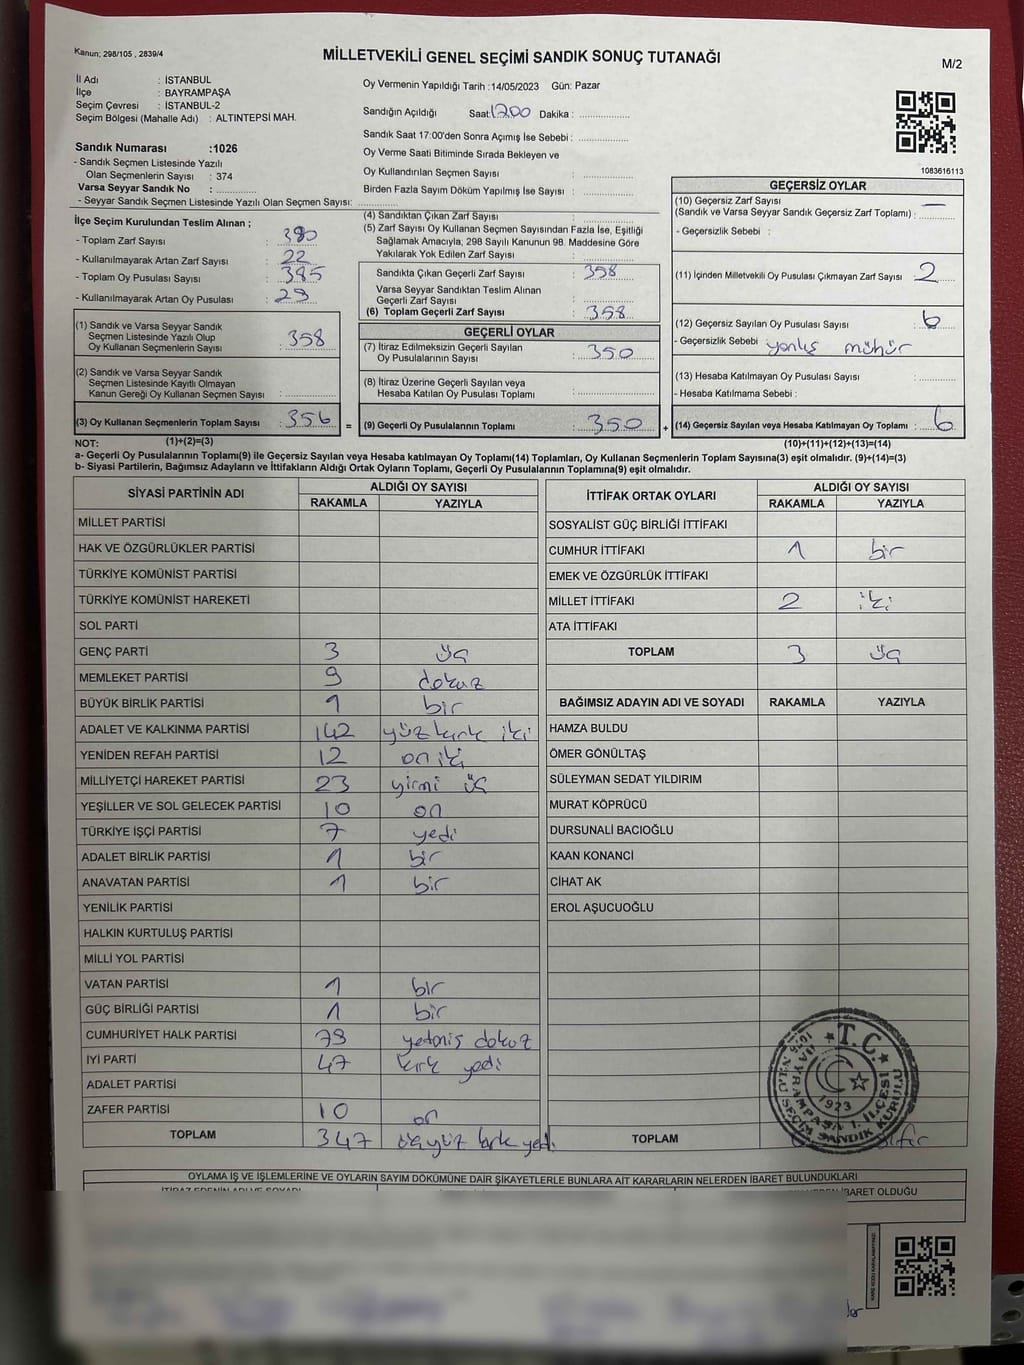 Kanun; 298/105 , 2839/4
MİLLETVEKİLİ GENEL SEÇİMİ SANDIK SONUÇ TUTANAĞI
M/2
İl Adı : İSTANBUL
İlçe : BAYRAMPAŞA
Seçim Çevresi : İSTANBUL-2
Seçim Bölgesi (Mahalle Adı) : ALTINTEPSİ MAH.
Sandık Numarası :1026
- Sandık Seçmen Listesinde Yazılı
Olan Seçmenlerin Sayısı : 374
Varsa Seyyar Sandık No :
- Seyyar Sandık Seçmen Listesinde Yazılı Olan Seçmen Sayısı:
Oy Vermenin Yapıldığı Tarih :14/05/2023 Gün: Pazar
Sandığın Açıldığı Saat 1700 Dakika :
Sandık Saat 17:00'den Sonra Açımış İse Sebebi :
Oy Verme Saati Bitiminde Sırada Bekleyen ve
Oy Kullandırılan Seçmen Sayısı :
Birden Fazla Sayım Döküm Yapılmış İse Sayısı :
1083616113
İlçe Seçim Kurulundan Teslim Alınan ;
- Toplam Zarf Sayısı : 380
- Kullanılmayarak Artan Zarf Sayısı : 22
- Toplam Oy Pusulası Sayısı : 385
- Kullanılmayarak Artan Oy Pusulası : 29
(1) Sandık ve Varsa Seyyar Sandık
Seçmen Listesinde Yazılı Olup
Oy Kullanan Seçmenlerin Sayısı : 358
(2) Sandık ve Varsa Seyyar Sandık
Seçmen Listesinde Kayıtlı Olmayan
Kanun Gereği Oy Kullanan Seçmen Sayısı :
(3) Oy Kullanan Seçmenlerin Toplam Sayısı : 356 =
(4) Sandıktan Çıkan Zarf Sayısı :
(5) Zarf Sayısı Oy Kullanan Seçmen Sayısından Fazla İse, Eşitliği
Sağlamak Amacıyla, 298 Sayılı Kanunun 98. Maddesine Göre
Yakılarak Yok Edilen Zarf Sayısı :
Sandıkta Çıkan Geçerli Zarf Sayısı : 358
Varsa Seyyar Sandıktan Teslim Alınan
Geçerli Zarf Sayısı :
(6) Toplam Geçerli Zarf Sayısı : 358
GEÇERLİ OYLAR
(7) İtiraz Edilmeksizin Geçerli Sayılan
Oy Pusulalarının Sayısı : 350
(8) İtiraz Üzerine Geçerli Sayılan veya
Hesaba Katılan Oy Pusulası Toplamı :
(9) Geçerli Oy Pusulalarının Toplamı : 350 +
GEÇERSİZ OYLAR
(10) Geçersiz Zarf Sayısı
(Sandık ve Varsa Seyyar Sandık Geçersiz Zarf Toplamı) : —
- Geçersizlik Sebebi :
(11) İçinden Milletvekili Oy Pusulası Çıkmayan Zarf Sayısı : 2
(12) Geçersiz Sayılan Oy Pusulası Sayısı : 6
- Geçersizlik Sebebi yanlış mühür
(13) Hesaba Katılmayan Oy Pusulası Sayısı :
- Hesaba Katılmama Sebebi :
(14) Geçersiz Sayılan veya Hesaba Katılmayan Oy Toplamı : 6
NOT: (1)+(2)=(3) (10)+(11)+(12)+(13)=(14)
a- Geçerli Oy Pusulasının Toplamı(9) ile Geçersiz Sayılan veya Hesaba Katılmayan Oy Toplamı(14) Toplamları, Oy Kullanan Seçmenlerin Toplam Sayısına(3) eşit olmalıdır. (9)+(14)=(3)
b- Siyasi Partilerin, Bağımsız Adayların ve İttifakların Aldığı Ortak Oyların Toplamı, Geçerli Oy Pusulalarının Toplamına(9) eşit olmalıdır.
SİYASİ PARTİNİN ADI ALDIĞI OY SAYISI
RAKAMLA YAZIYLA
MİLLET PARTİSİ
HAK VE ÖZGÜRLÜKLER PARTİSİ
TÜRKİYE KOMÜNİST PARTİSİ
TÜRKİYE KOMÜNİST HAREKETİ
SOL PARTİ
GENÇ PARTİ 3 üç
MEMLEKET PARTİSİ 9 dokuz
BÜYÜK BİRLİK PARTİSİ 1 bir
ADALET VE KALKINMA PARTİSİ 142 yüz kırk iki
YENİDEN REFAH PARTİSİ 12 on iki
MİLLİYETÇİ HAREKET PARTİSİ 23 yirmi üç
YEŞİLLER VE SOL GELECEK PARTİSİ 10 on
TÜRKİYE İŞÇİ PARTİSİ 7 yedi
ADALET BİRLİK PARTİSİ 1 bir
ANAVATAN PARTİSİ 1 bir
YENİLİK PARTİSİ
HALKIN KURTULUŞ PARTİSİ
MİLLİ YOL PARTİSİ
VATAN PARTİSİ 1 bir
GÜÇ BİRLİĞİ PARTİSİ 1 bir
CUMHURİYET HALK PARTİSİ 79 yetmiş dokuz
İYİ PARTİ 47 kırk yedi
ADALET PARTİSİ
ZAFER PARTİSİ 10 on
TOPLAM 347 üçyüz kırk yedi
İTTİFAK ORTAK OYLARI ALDIĞI OY SAYISI
RAKAMLA YAZIYLA
SOSYALİST GÜÇ BİRLİĞİ İTTİFAKI
CUMHUR İTTİFAKI 1 bir
EMEK VE ÖZGÜRLÜK İTTİFAKI
MİLLET İTTİFAKI 2 iki
ATA İTTİFAKI
TOPLAM 3 üç
BAĞIMSIZ ADAYIN ADI VE SOYADI RAKAMLA YAZIYLA
HAMZA BULDU
ÖMER GÖNÜLTAŞ
SÜLEYMAN SEDAT YILDIRIM
MURAT KÖPRÜCÜ
DURSUNALİ BACIOĞLU
KAAN KONANCİ
CİHAT AK
EROL AŞUCUOĞLU
TOPLAM sıfır
T.C.
BAYRAMPAŞA 1. İLÇESİ
1026 NOLU SEÇİM SANDIK KURULU
1923
OYLAMA İŞ VE İŞLEMLERİNE VE OYLARIN SAYIM DÖKÜMÜNE DAİR ŞİKAYETLERLE BUNLARA AİT KARARLARIN NELERDEN İBARET BULUNDUKLARI
İTİRAZ EDENİN ADI VE SOYADI
İBARET OLDUĞU